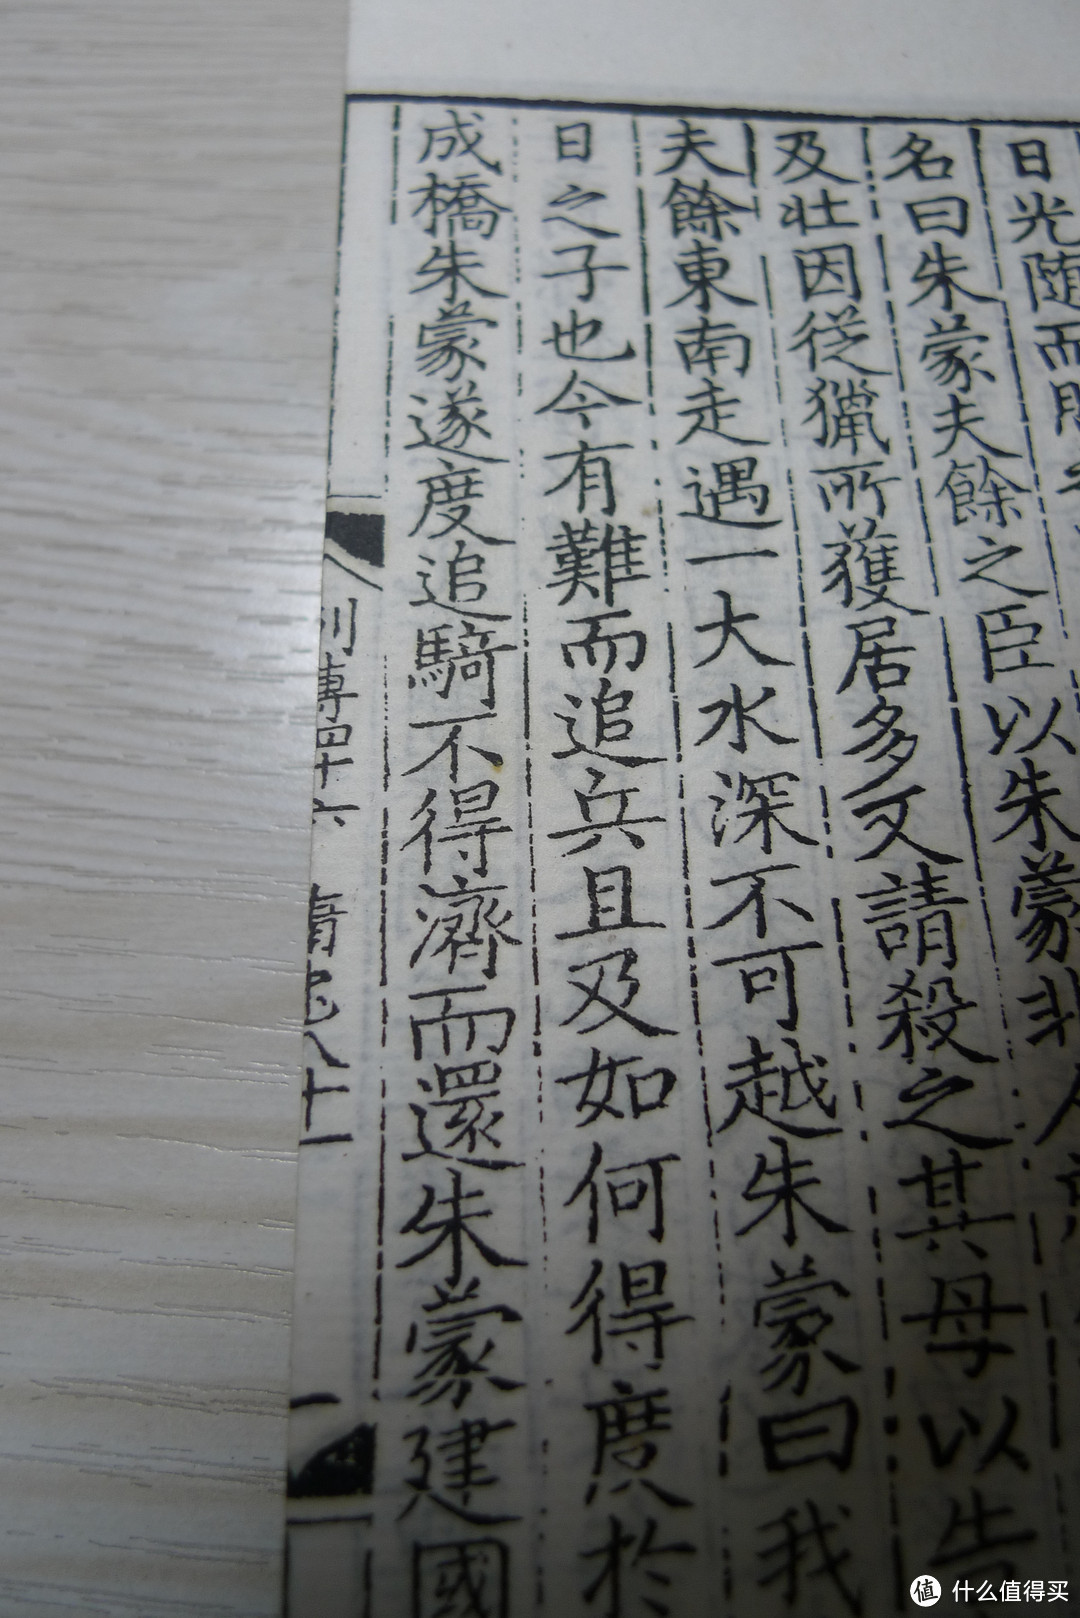 日光隨而
名曰朱蒙夫餘之臣以朱蒙非
及壯因從獵所獲居多又請殺之其母以告
夫餘東南走遇一大水深不可越朱蒙曰我
日之子也今有難而追兵且及如何得度於
成橋朱蒙遂度追騎不得濟而還朱蒙建國
列傳四十六 隋書八十一
值 什么值得买